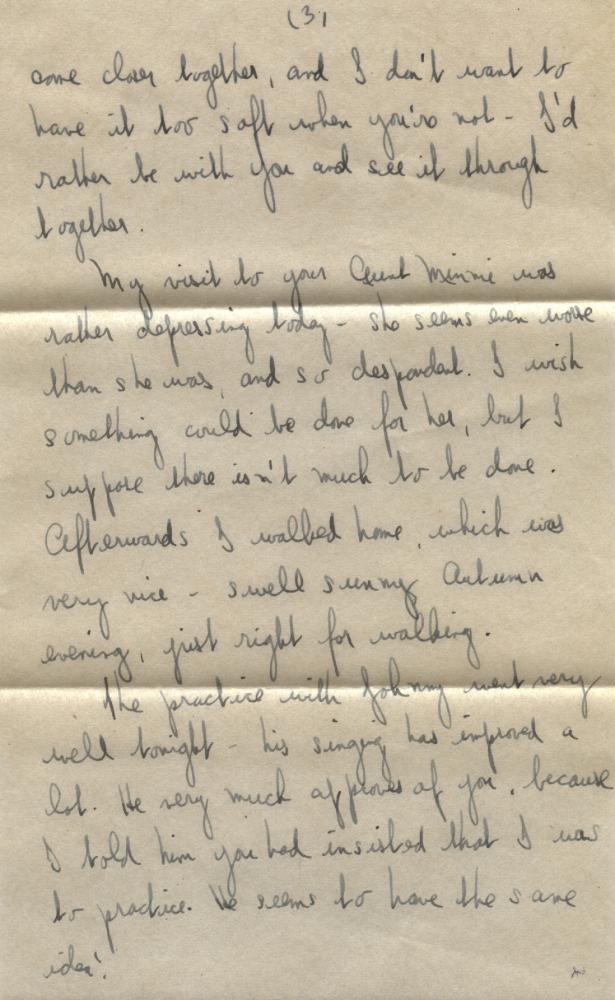 (3)
come closer together, and I don't want to
have it too soft when you're not - I'd
rather be with you and see it through
together.
My visit to your Aunt Minnie was
rather depressing today - she seems even worse
than she was, and so despondent. I wish
something could be done for her, but I
suppose there isn't much to be done.
Afterwards I walked home, which was
very nice - swell sunny Autumn
evening, just right for walking.
The practice with Johnny went very
well tonight - his singing has improved a
lot. He very much approves of you, because
I told him you had insisted that I was
to practice. He seems to have the same
idea!